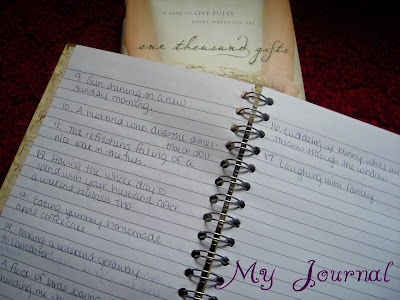 A DARE TO LIVE FULLY
RIGHT WHERE YOU ARE
one thousand gifts
9. Sun shining on a new
Sunday morning.
10. A husband who does the dishes.
11. The refreshing feeling of a
nice walk in the
12. Having the whole day to
spend with your husband after
a weekend
13. Eating yummy homemade
apple coffee cake
14. a weekend getaway
A flock of birds
me
16. Cuddling w/ bunny while sun
streams through the window
17. Laughing with family
My Journal